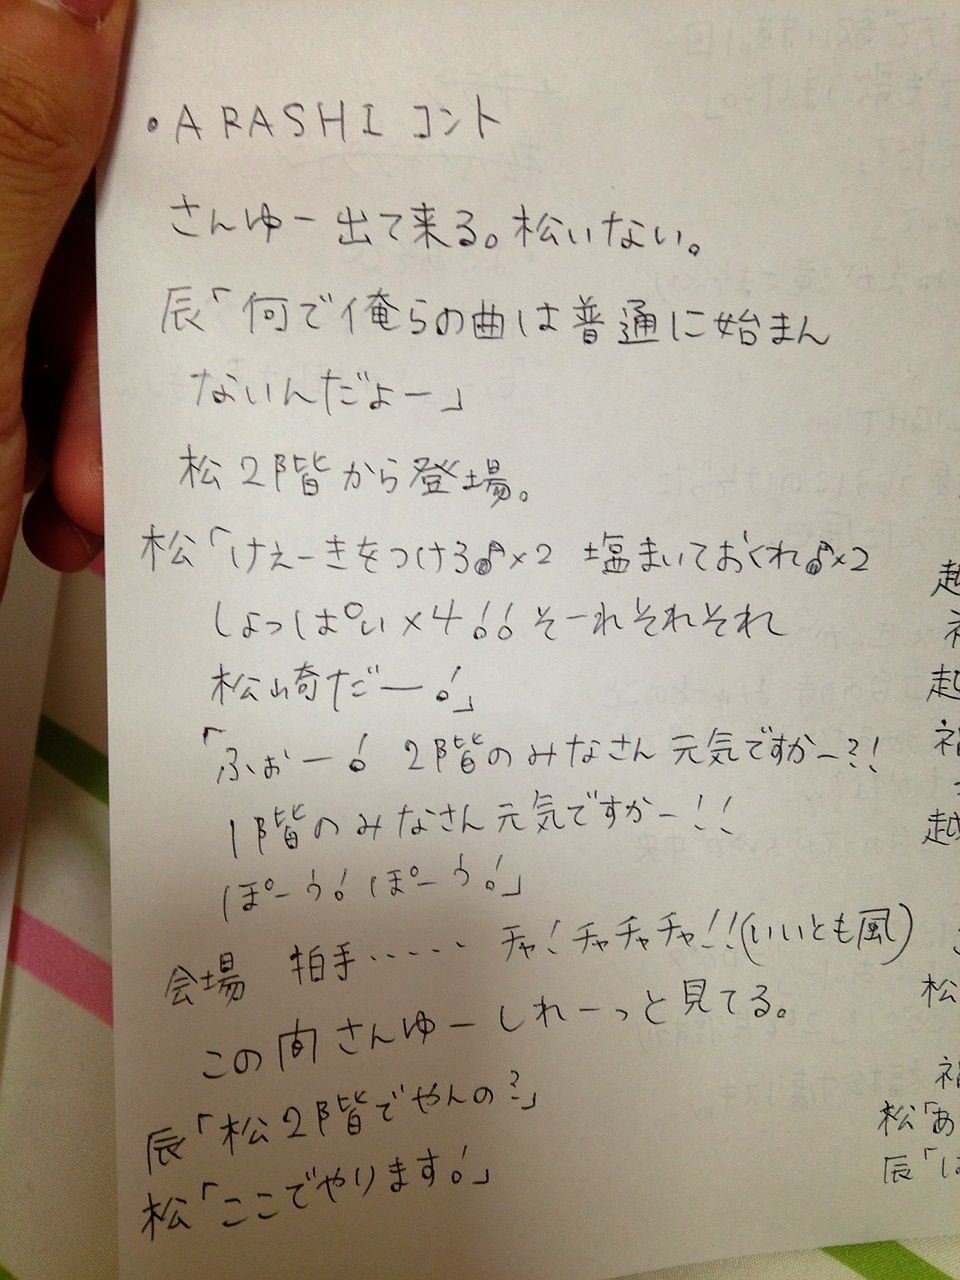 ・ARASHI コント
さんゆー出て来る。松いない。
辰「何で俺らの曲は普通に始まん
ないんだよー」
松2階から登場。
松「けぇーきをつけろ♪×2 塩まいておくれ♪×2
しょっぱい×4!! そーれそれそれ
松崎だー!」
「ふぉー! 2階のみなさん元気ですかー?!
1階のみなさん元気ですかー!!
ぽーう! ぽーう!」
会場 拍手‥‥ チャ!チャチャチャ!!(いいとも風)
この間さんゆーしれーっと見てる。
辰「松2階でやんの?」
松「ここでやります!」
越
越
越
松
松「あ
辰「は